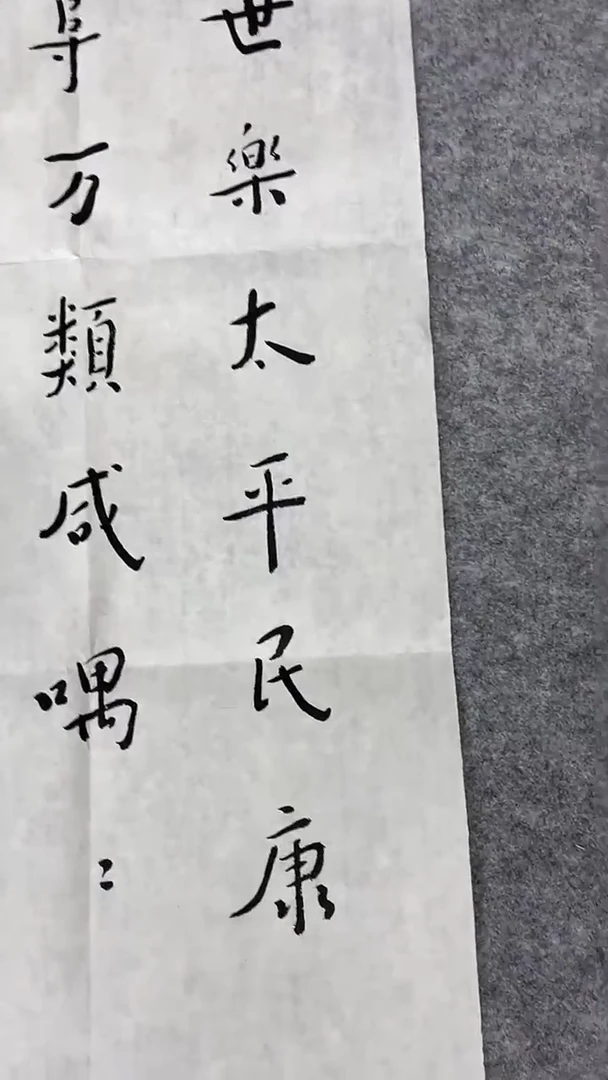 世楽太平民康
万類咸喁：